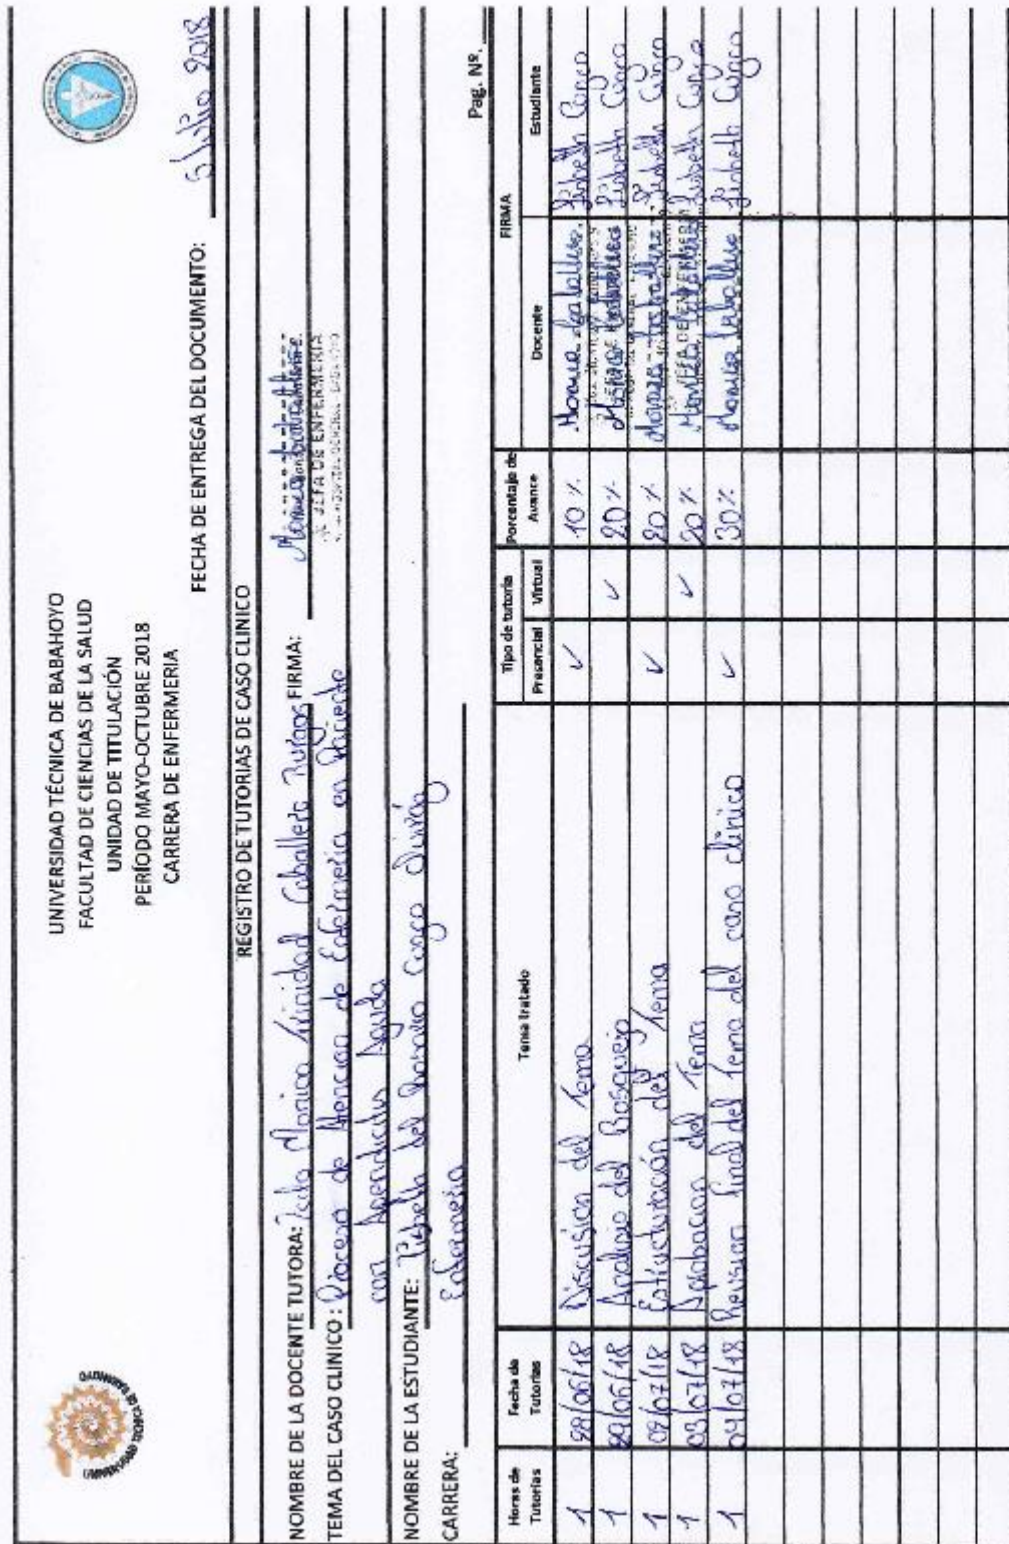 UNIVERSIDAD TÉCNICA DE BABAHOYO
FACULTAD DE CIENCIAS DE LA SALUD
UNIDAD DE TITULACIÓN
PERÍODO MAYO-OCTUBRE 2018
CARRERA DE ENFERMERIA
FECHA DE ENTREGA DEL DOCUMENTO: 5 Julio 2018
REGISTRO DE TUTORIAS DE CASO CLINICO
NOMBRE DE LA DOCENTE TUTORA: Lcda Monica Trinidad Caballero Burgos FIRMA:
JEFA DE ENFERMERIA
TEMA DEL CASO CLINICO : Proceso de Atencion de Enfermeria en Paciente
con Apendicitis Aguda
NOMBRE DE LA ESTUDIANTE: Lisbeth del Rosario Coque
CARRERA: Enfermeria
Pag. Nº.
Horas de Tutorias Fecha de Tutorias Tema tratado Tipo de tutoria Presencial Virtual Porcentaje de Avance FIRMA Docente Estudiante
1 28/06/18 Discusion del Tema ✓ 10 % Monica Caballero Lisbeth
1 29/06/18 Analisis del Bosquejo ✓ 20 % Monica Caballero Lisbeth
1 02/07/18 Estructuración del Tema ✓ 20 % Monica Caballero Lisbeth
1 03/07/18 Aprobacion del Tema ✓ 20 % Lisbeth
1 04/07/18 Revision final del Tema del caso clinico ✓ 30 % Monica Caballero Lisbeth
JEFA DE ENFERMERIA